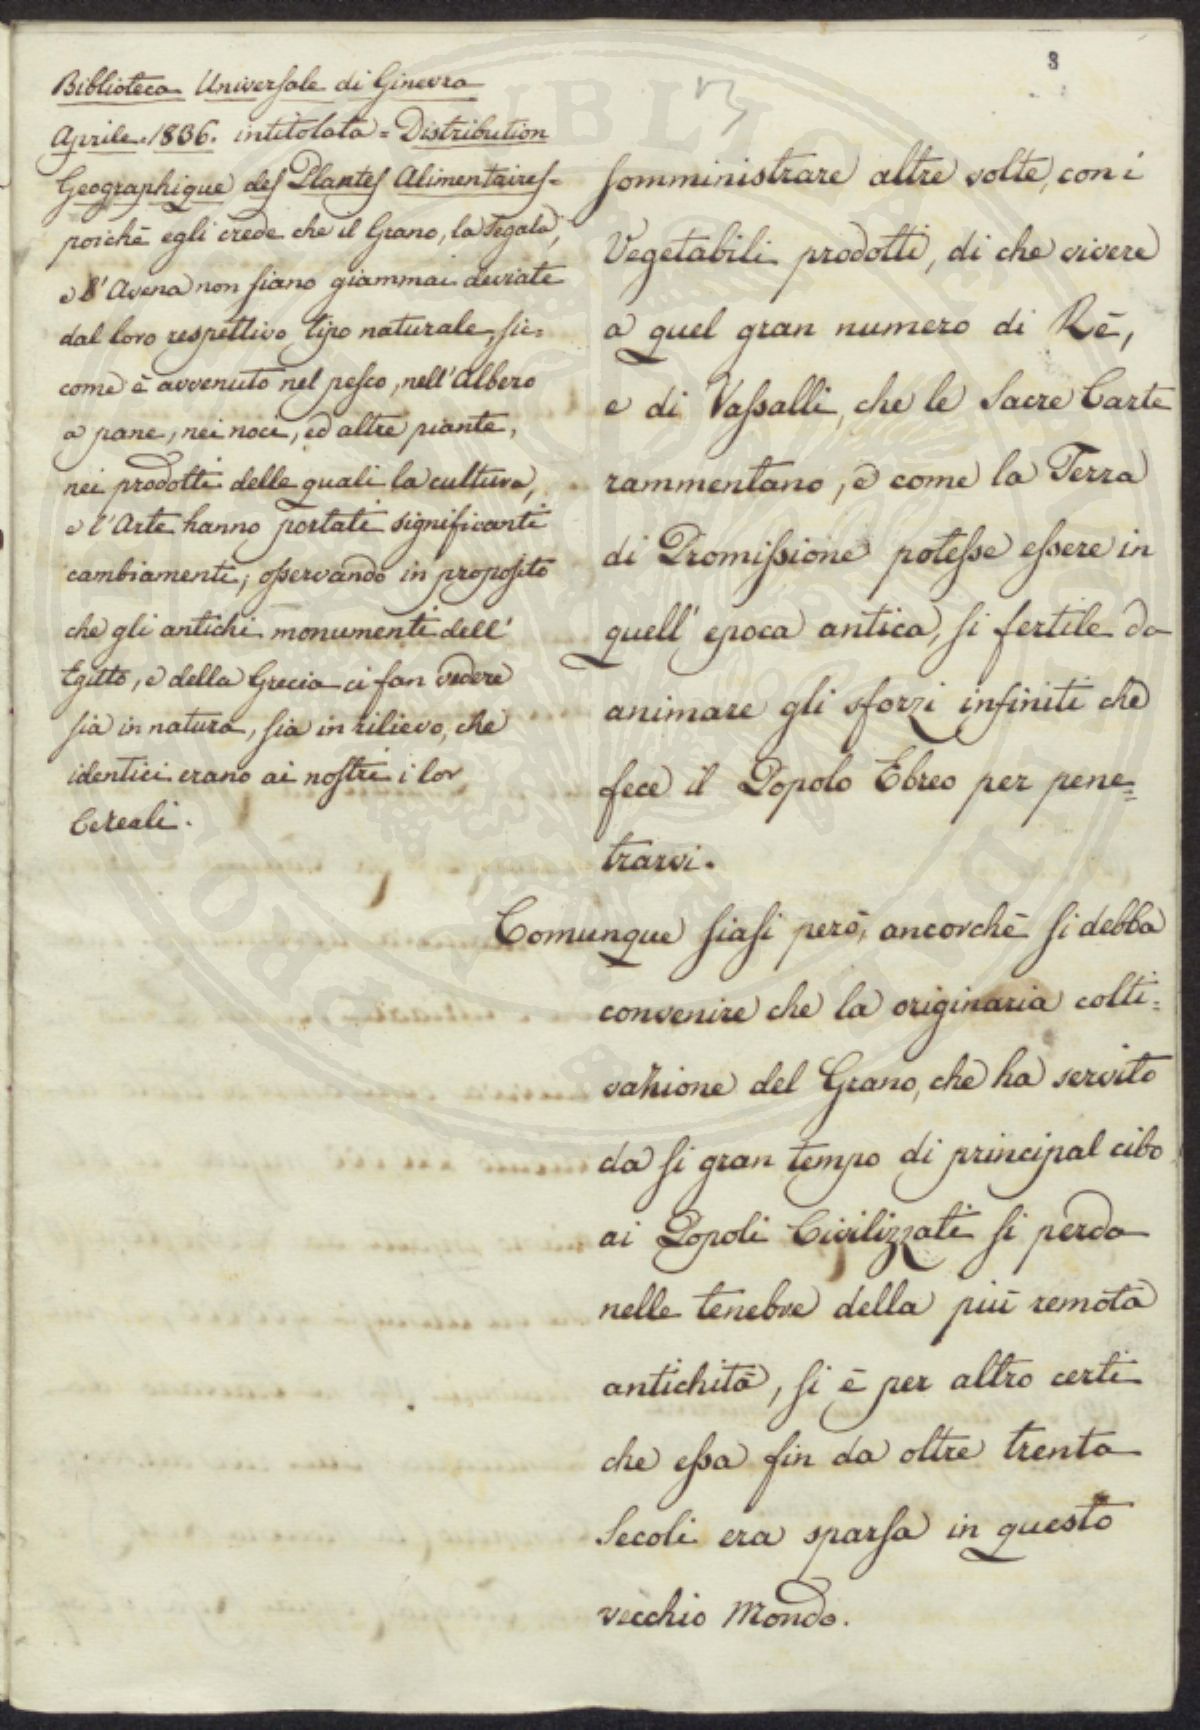 8
Biblioteca Universale di Ginevra
Aprile. 1836. intitolata = Distribution
Geographique des Plantes Alimentaires =
poichè egli crede che il Grano, la Segala,
e l'Avena non siano giammai deviate
dal loro respettivo tipo naturale, sic=
come è avvenuto nel pesco, nell'Albero
a pane, nei noci, ed altre piante,
nei prodotti delle quali la cultura,
e l'Arte hanno portati significanti
cambiamenti; osservando in proposito
che gli antichi monumenti dell'
Egitto, e della Grecia ci fan vedere
sia in natura, sia in rilievo, che
identici erano ai nostri i lor
Cereali.
somministrare altre volte, con i
Vegetabili prodotti, di che vivere
a quel gran numero di Rè,
e di Vassalli, che le Sacre Carte
rammentano, e come la Terra
di Promissione potesse essere in
quell' epoca antica, si fertile da
animare gli sforzi infiniti che
fece il Popolo Ebreo per pene=
trarvi.
Comunque siasi però, ancorchè si debba
convenire che la originaria colti=
vazione del Grano, che ha servito
da si gran tempo di principal cibo
ai Popoli Civilizzati si perda
nelle tenebre della più remota
antichità, si è per altro certi
che essa fin da oltre trenta
Secoli era sparsa in questo
vecchio Mondo.